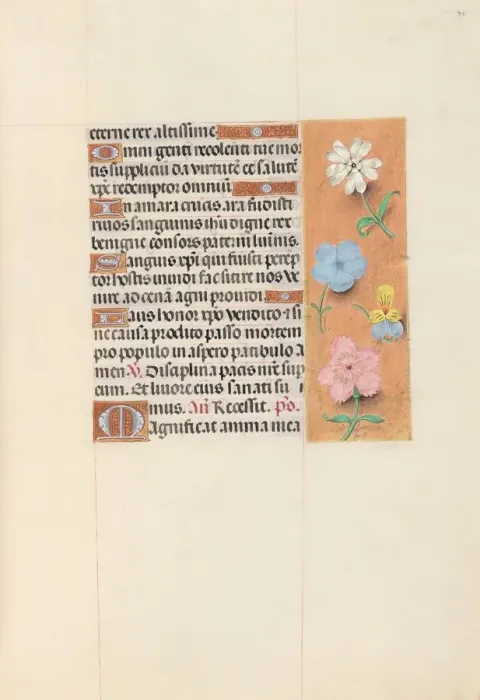 eterne rex altissime
Omni genti recolenti tue mor
tis suppliciū da virtutē et salutē
xp̄e redemptor omniū
In amara crucis ara fudisti
rivos sanguinis ihū digne rex
benigne consors paterni luminis.
Sanguis xp̄i qui fuisti perēp
tor hostis mundi fac sitire nos ve
nire ad cenā agni providi.
Laus honor xp̄o vendito ⁊ si
ne causa prodito passo mortem
pro populo in aspero patibulo A
men V. Disciplina pacis nr̄e sup
eum. Et livore eius sanati su
mus. An̄ Recessit. ps̄.
Magnificat anima mea